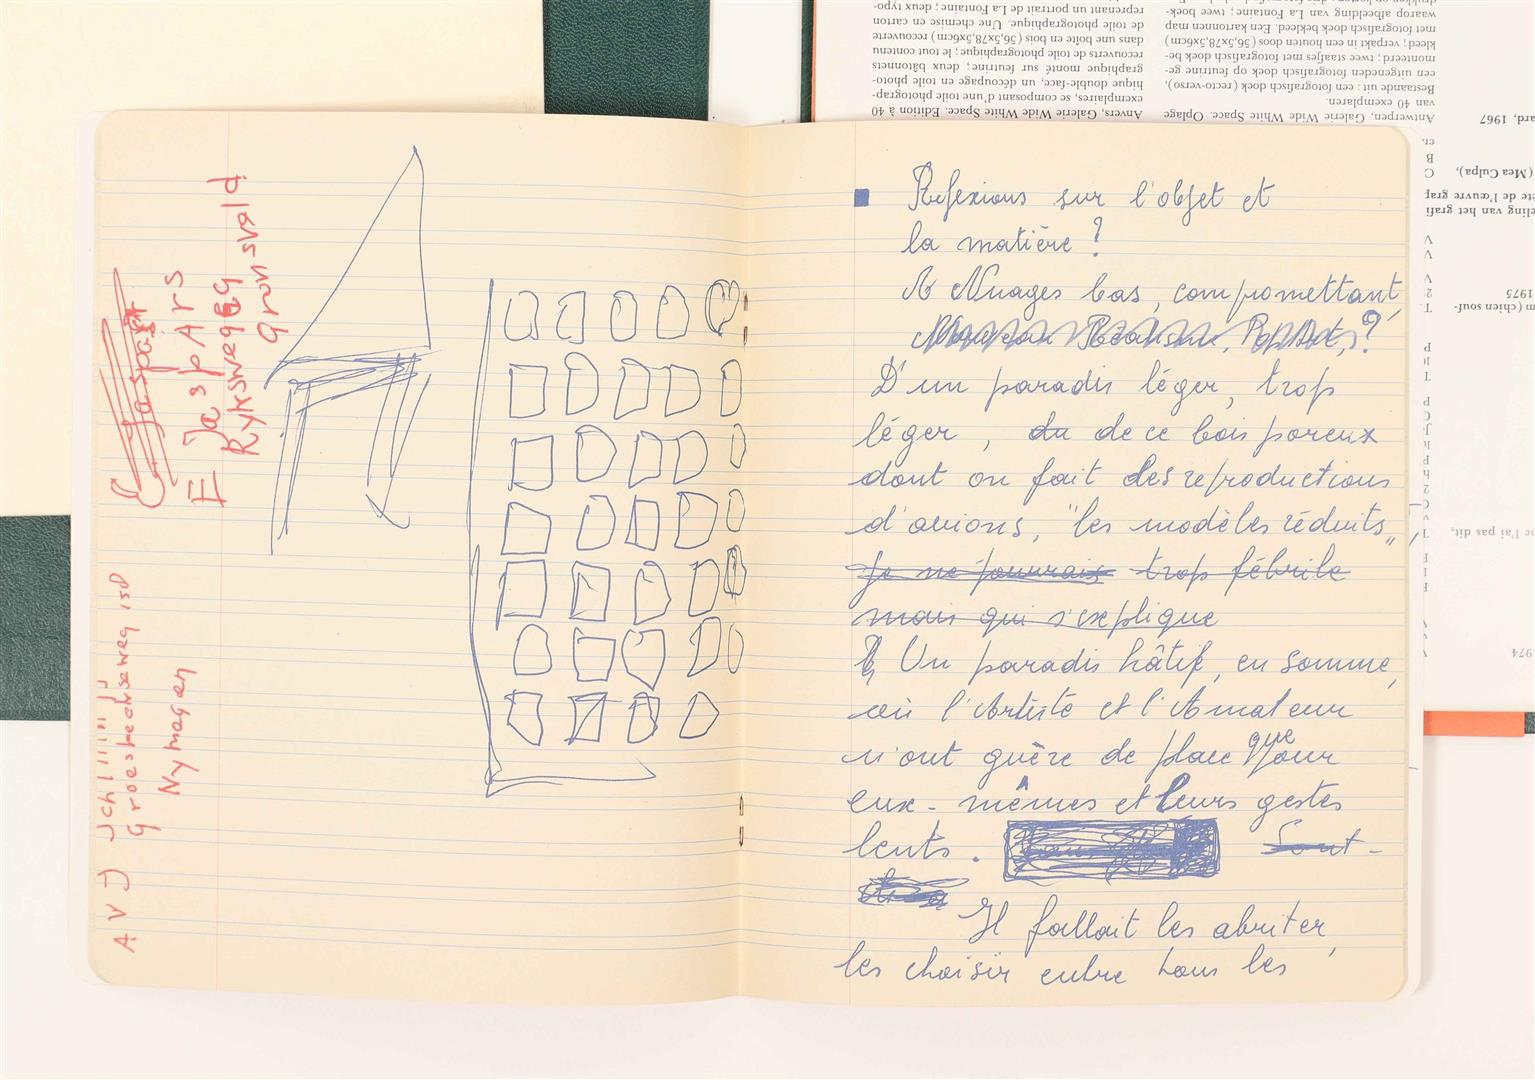 E. Jaspart
E Jaspars
Ryksweg
Gronsveld
A V D
Groesbeekseweg 150
Nymegen
Refexions sur l'objet et
la matière ?
Nuages bas, compromettant,
Nouveau Réalisme, Pop Art, ?
D'un paradis léger, trop
léger, du de ce bois poreux
dont on fait des reproductions
d'avions, "les modèles réduits"
Je ne pourrais trop fébrile
mais qui s'explique
Un paradis hâtif, en somme,
où l'Artiste et l'Amateur
n'ont guère de place que pour
eux-mêmes et leurs gestes
lents. Sont-
Il fallait les abriter,
les choisir entre tous les
reprenant un portrait de La Fontaine ; deux typo-
de toile photographique. Une chemise en carton
dans une boîte en bois (56,5x78,5x6cm) recouverte
recouverts de toile photographique ; le tout contenu
graphique monté sur feutrine ; deux bâtonnets
hique double-face, un découpage en toile photo-
exemplaires, se composant d'une toile photograp-
Anvers, Galerie Wide White Space. Edition à 40
waarop afbeelding van La Fontaine ; twee boek-
met fotografisch doek bekleed. Een kartonnen map
kleed ; verpakt in een houten doos (56,5x78,5x6cm)
monteerd ; twee staafjes met fotografisch doek be-
een uitgeneden fotografisch doek op feutrine ge-
Bestaande uit : een fotografisch doek (recto-verso),
van 40 exemplaren.
Antwerpen, Galerie Wide White Space. Oplage
ard, 1967
(Mea Culpa),
ète de l'œuvre graf
eling van het grafi
1975
m (chien souf-
ne l'ai pas dit,
974